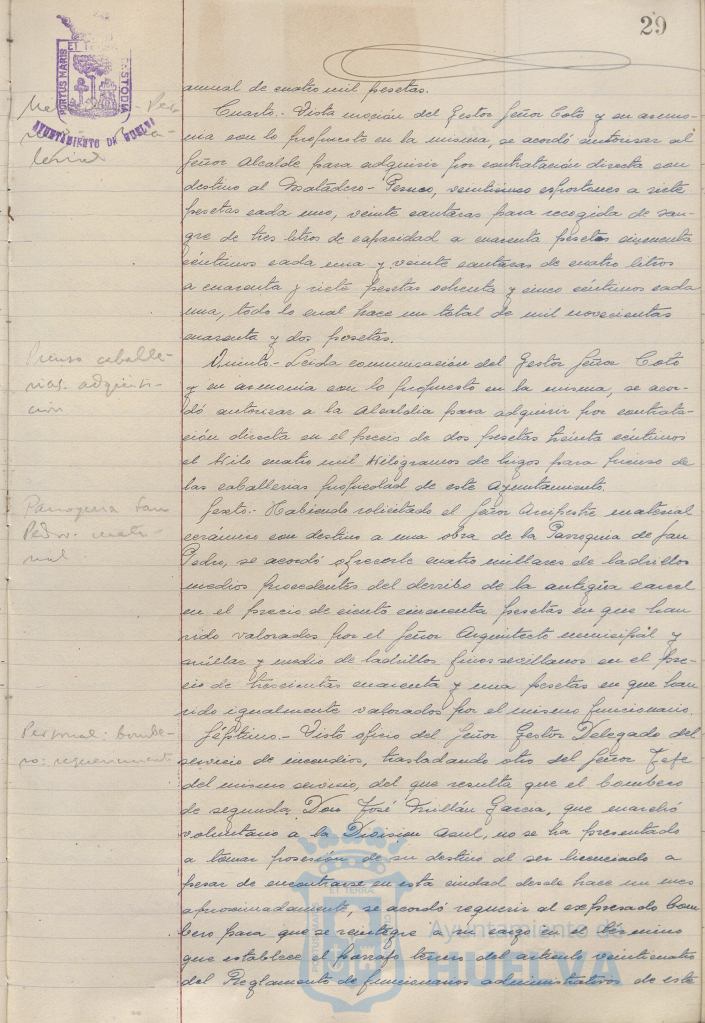 29
PORTUS MARIS ET TERRÆ CUSTODIA
AYUNTAMIENTO DE HUELVA
anual de cuatro mil pesetas.
Cuarto.- Vista moción del Gestor Señor Coto y en armo-
nia con lo propuesto en la misma, se acordó autorizar al
Señor Alcalde para adquirir por contratación directa con
destino al Matadero-, veinticinco esportones a siete
pesetas cada uno, veinte cantaras para recogida de san-
gre de tres litros de capacidad a cuarenta pesetas cincuenta
céntimos cada una y veinte cantaras de cuatro litros
a cuarenta y siete pesetas ochenta y cinco céntimos cada
una, todo lo cual hace un total de mil novecientas
cuarenta y dos pesetas.
Pienso caballe-
rias: adquisi-
ción
Quinto.- Leida comunicación del Gestor Señor Coto
y en armonia con lo propuesto en la misma, se acor-
dó autorizar a la Alcaldia para adquirir por contrata-
ción directa en el precio de dos pesetas treinta céntimos
el kilo cuatro mil kilógramos de higos para pienso de
las caballerias propiedad de este Ayuntamiento.
Parroquia San
Pedro: mate-
rial
Sexto.- Habiendo solicitado el Señor Arcipreste material
cerámico con destino a una obra de la Parroquia de San
Pedro, se acordó ofrecerle cuatro millares de ladrillos
medios procedentes del derribo de la antigüa carcel
en el precio de ciento cincuenta pesetas en que han
sido valorados por el Señor Arquitecto municipal y
millar y medio de ladrillos finos sevillanos en el pre-
cio de trescientas cuarenta y una pesetas en que han
sido igualmente valorados por el mismo funcionario.
Personal: bombe-
ro: requerimiento
Séptimo.- Visto oficio del Señor Gestor Delegado del
servicio de incendios, trasladando otro del Señor Jefe
del mismo servicio, del que resulta que el bombero
de segunda Don José Millán Garcia, que marchó
voluntario a la Division Azul, no se ha presentado
a tomar posesión de su destino al ser licenciado a
pesar de encontrarse en esta ciudad desde hace un mes
aproximadamente, se acordó requerir al expresado bom-
bero para que se reintegre a su cargo en el término
que establece el párrafo tercero del articulo veinticuatro
del Reglamento de funcionarios administrativos de este
Ayuntamiento de
HUELVA